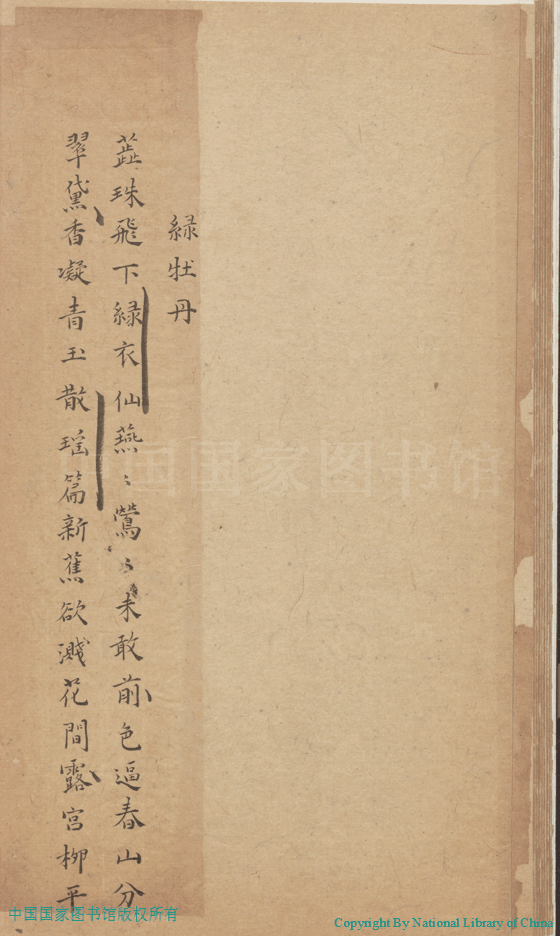 緑牡丹
蕋珠飛下緑衣仙燕〻鶯〻未敢前色逼春山分
翠黛香凝青玉散瑶篇新蕉欲濺花間露宮柳平
中国国家图书馆
中国国家图书馆版权所有
Copyright By National Library of China